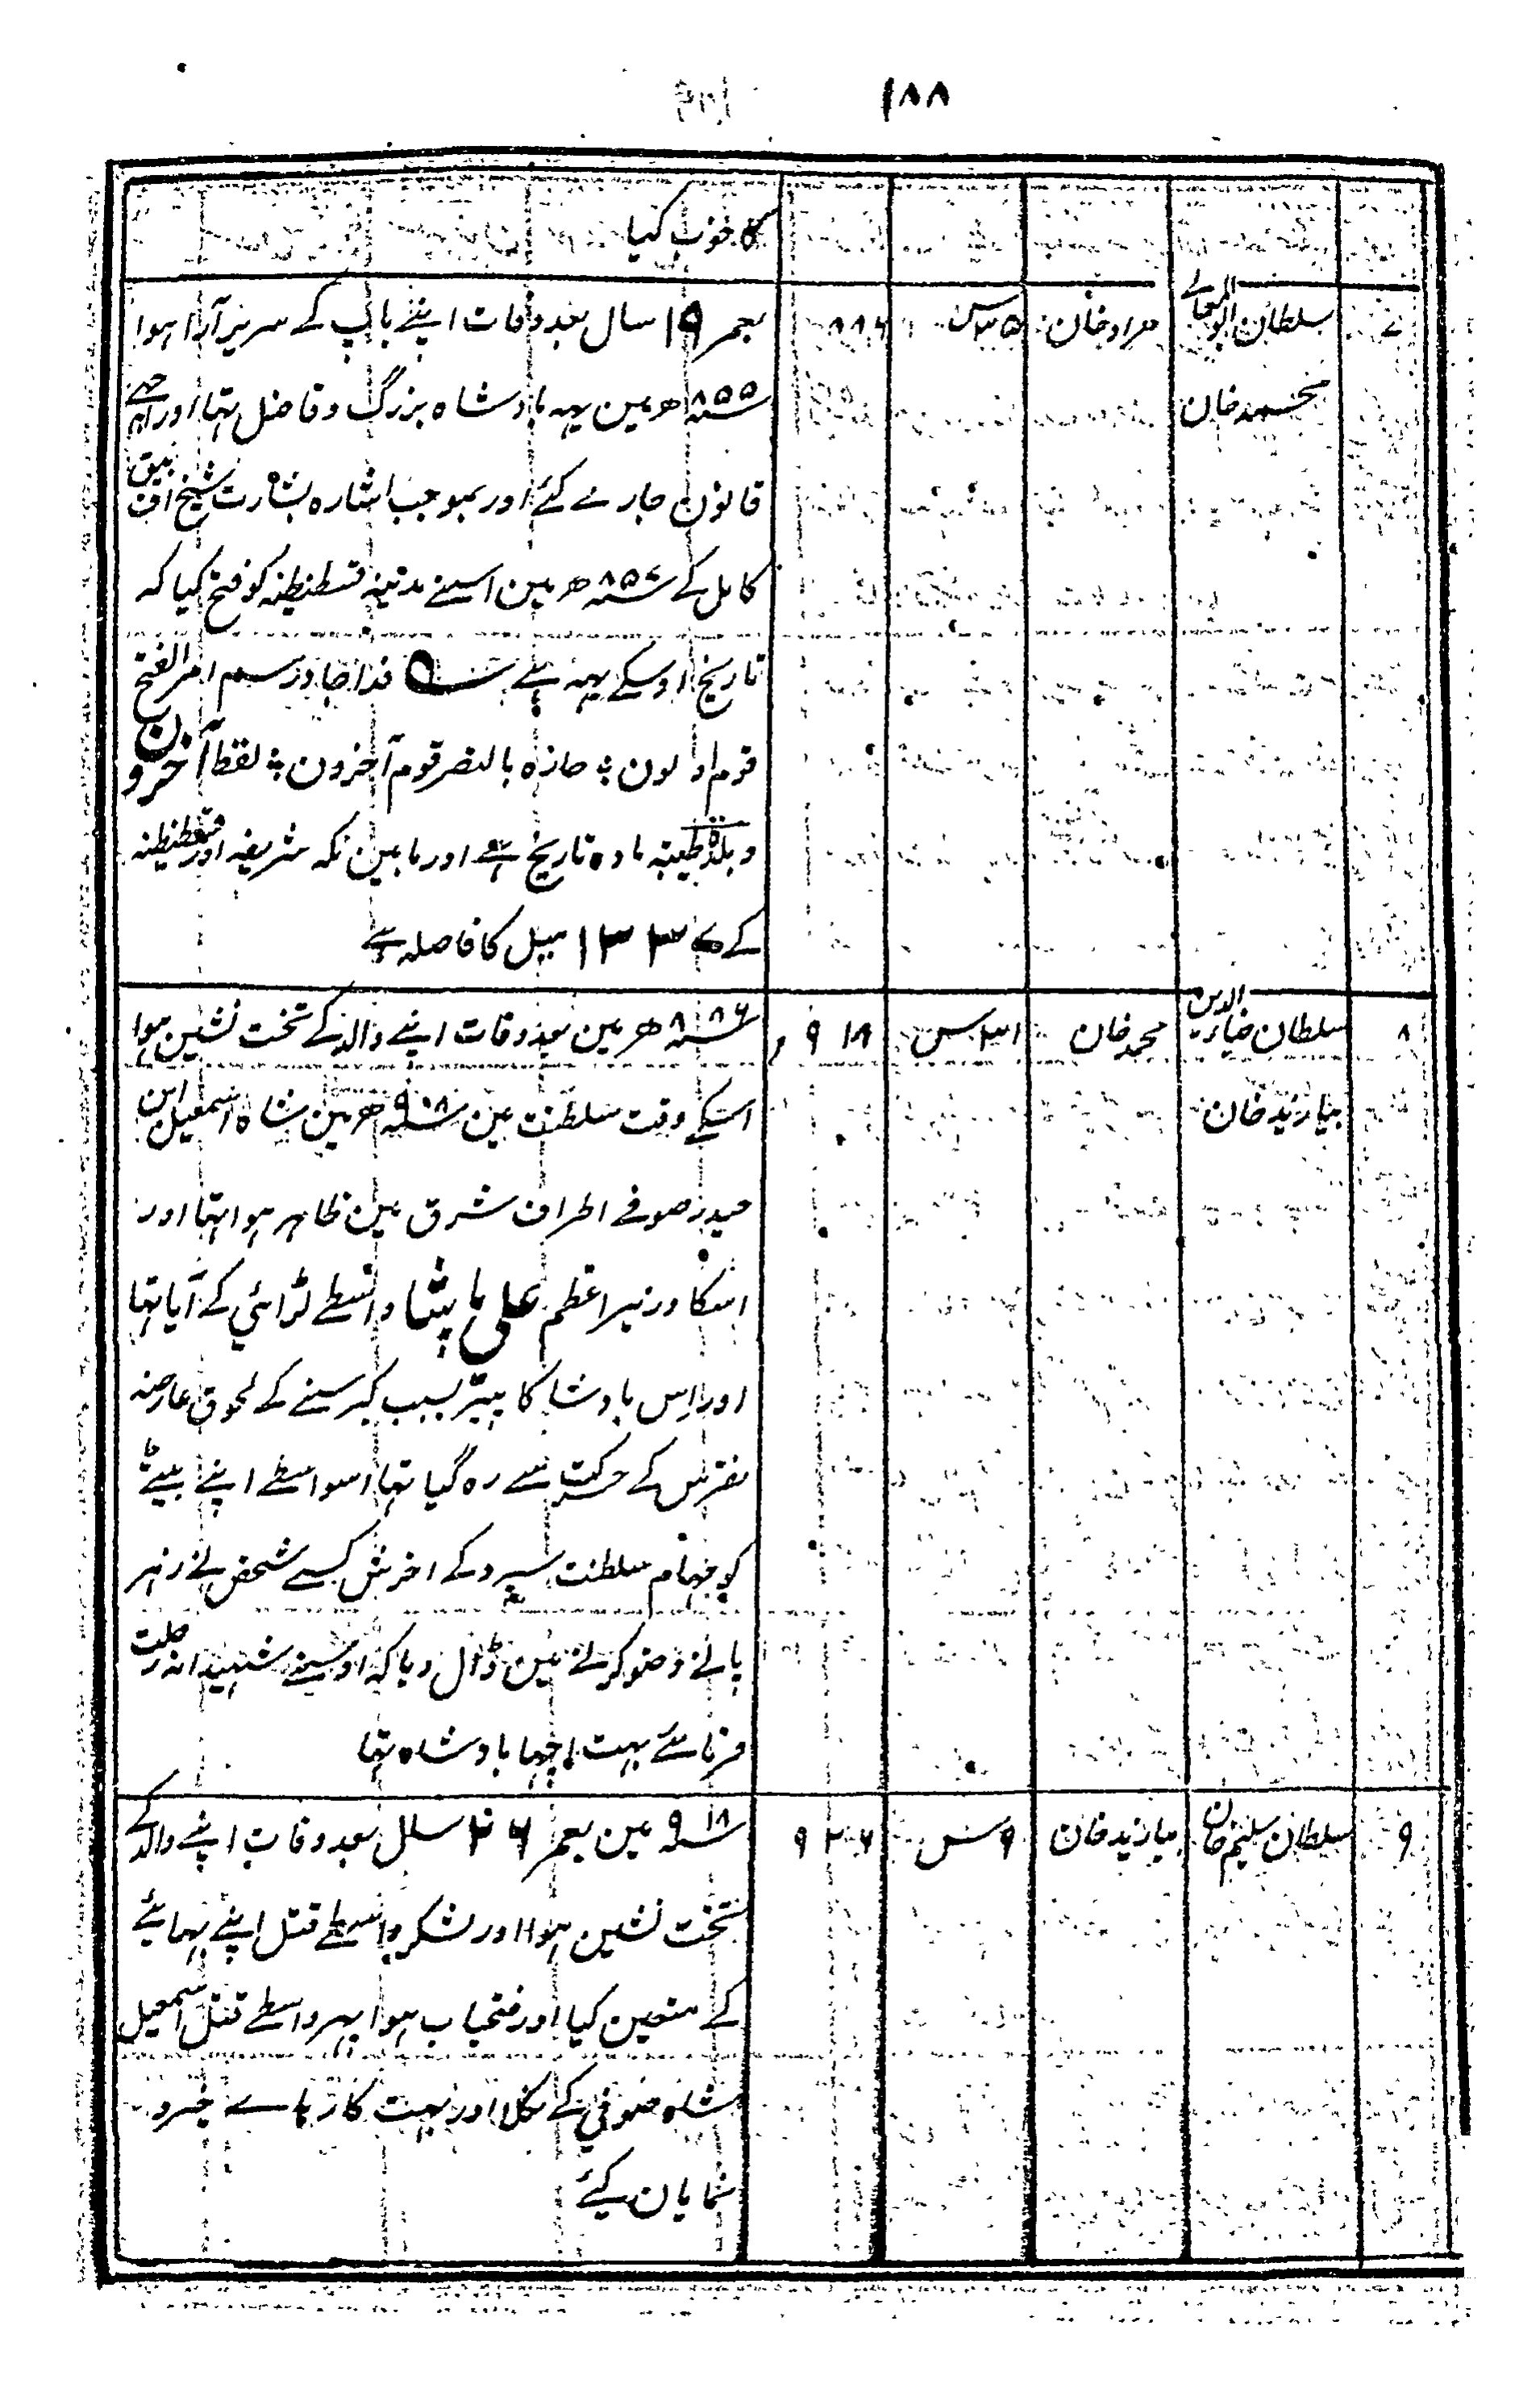 ۱۸۸
کا خوب کیا
۷ سلطان ابو المعالے مراد خان ۳۵ س ۸۸۶ بعمر ۱۹ سال بعد وفات اپنے باپ کے سریر آرا ہوا
محمد خان ۸۵۵ھ مین یہہ بادشاہ بزرگ و فاضل تہا اور اچہے
قانون جارے کئے اور بموجب اشارہ بشارت شیخ آق بیق
کامل کے ۸۵۷ھ مین اسنے مدینہ قسطنطنیہ کو فتح کیا کہ
تاریخ اوسکے یہہ ہے امر الفتح
قوم اولون ؞ حازہ بالنصر قوم آخرون ؞ لفظ آخرون
و بلدة طیبة مادہ تاریخ ہے اور مابین مکہ شریفہ اور قسطنطنیہ
کے ۱۳۳۷ میل کا فاصلہ ہے
۸ سلطان ضیاء الدین محمد خان ۳۱ س ۹۱۸ ۸۸۶ھ مین بعد وفات اپنے والد کے تخت نشین ہوا
بیازید خان اسکے وقت سلطنت مین ۹۰۸ھ مین شاہ اسمعیل ابن
حیدر صوفے اطراف شرق مین ظاہر ہوا تہا اور
اسکا وزیر اعظم علی پاشا واسطے لڑائی کے آیا تہا
اور اس بادشا کا پیر بسبب کبر سنے کے لحوق عارضہ
نقرس کے حرکت سے رہ گیا تہا اسواسطے اپنے بیٹے
کو مہام سلطنت سپرد کے اخرش کسے شخص نے زہر
پانے وضو کرنے مین ڈال دیا کہ اوسنے شہیدانہ رحلت
فرمائے بہت اچہا بادشاہ تہا
۹ سلطان سلیم خان بیازید خان ۹ س ۹۲۶ ۹۱۸ مین بعمر ۴۶ سال بعد وفات اپنے والد کے
تخت نشین ہوا اور لشکر واسطے قتل اپنے بہائے
کے متعین کیا اور فتحیاب ہوا پہر واسطے قتل اسمعیل
شاہ صوفی کے نکلا اور بہت کار ہاے
نمایان کیے